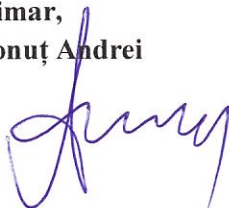 imar,
onuț Andrei